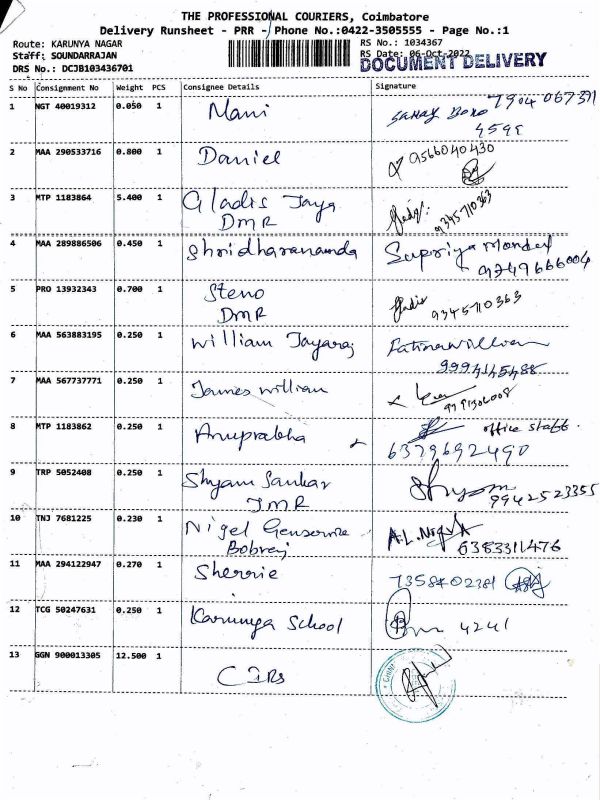 THE PROFESSIONAL COURIERS, Coimbatore
Delivery Runsheet - PRR - Phone No.:0422-3505555 - Page No.:1
Route: KARUNYA NAGAR
RS No.: 1034367
Staff: SOUNDARRAJAN
RS Date: 06-Oct-2022
DOCUMENT DELIVERY
DRS No.: DCJB103436701
S No Consignment No Weight PCS Consignee Details Signature
1 NGT 40019312 0.050 1 Mani
4598
2 MAA 290533716 0.800 1 Daniel 9566040430
3 MTP 1183864 5.400 1 Gladis Jaya
DMR 9345710363
4 MAA 289886506 0.450 1 Shridharananda Supriya Mondal
9749666004
5 PRO 13932343 0.700 1 Steno
DMR 9345710363
6 MAA 563883195 0.250 1 William Jayaraj
9994145488
7 MAA 567737771 0.250 1 James william
8 MTP 1183862 0.250 1 Anuprabha office staff.
6379692490
9 TRP 5052408 0.250 1 Shyam Sankar Shyam
9942523355
10 TNJ 7681225 0.230 1 Nigel
6383311476
11 MAA 294122947 0.270 1 Sherrie 7358402381
12 TCG 50247631 0.250 1 Karunya School 4241
13 GGN 900013305 12.500 1 CIRs